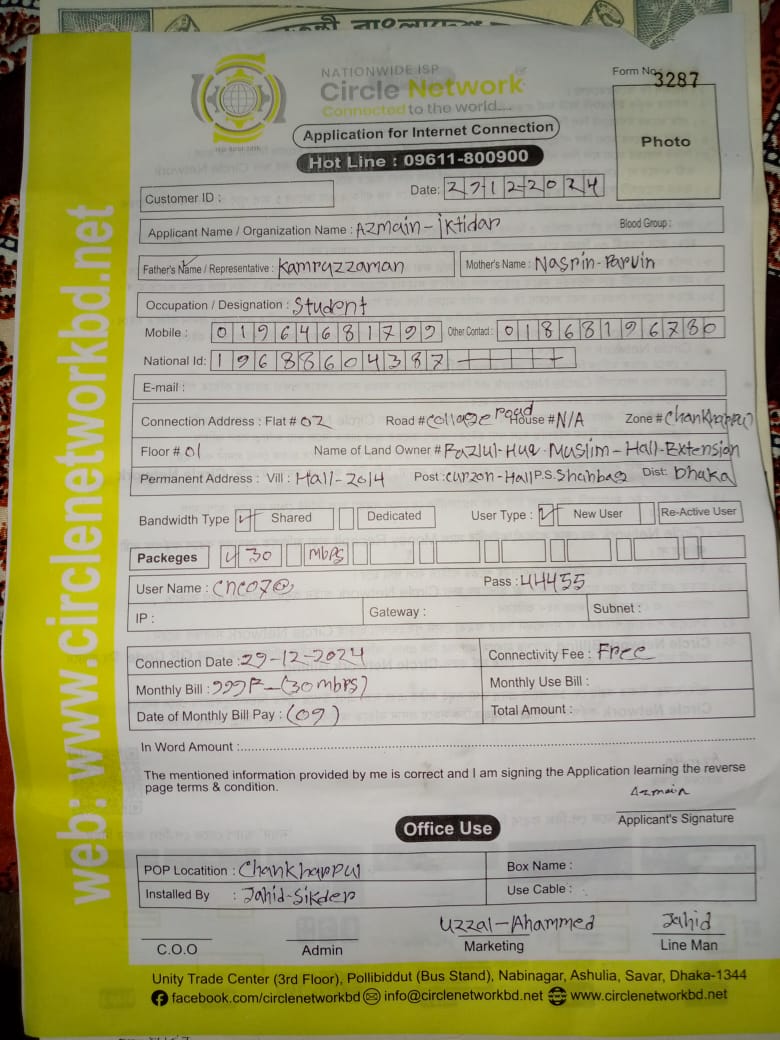 NATIONWIDE ISP
Circle Network
Connected to the world....
Form No. 3287
Photo
Application for Internet Connection
Hot Line : 09611-800900
Customer ID :
Date: 27122024
Applicant Name / Organization Name : Azmain-iktidar Blood Group :
Father's Name / Representative : Kamruzzaman Mother's Name : Nasrin-Parvin
Occupation / Designation : Student
Mobile : 01964681799 Other Contact : 01868196780
National Id: 19688604387
E-mail :
Connection Address : Flat # 02 Road # collage road House # N/A Zone # Chankharpul
Floor # 01 Name of Land Owner # Fazlul-Huq-Muslim-Hall-Extension
Permanent Address : Vill : Hall-2014 Post : curzon-Hall P.S. Shahbag Dist: Dhaka
Bandwidth Type ✓ Shared Dedicated User Type : ✓ New User Re-Active User
Packeges ✓ 30 Mbps
User Name : cnc07@ Pass : 44455
IP : Gateway : Subnet :
Connection Date : 29-12-2024 Connectivity Fee : Free
Monthly Bill : 999৳-(30mbps) Monthly Use Bill :
Date of Monthly Bill Pay : (09) Total Amount :
In Word Amount :
The mentioned information provided by me is correct and I am signing the Application learning the reverse
page terms & condition.
Azmain
Applicant's Signature
Office Use
POP Locatition : Chankharpul Box Name :
Installed By : Jahid-Sikder Use Cable :
Uzzal-Ahammed Jahid
C.O.O Admin Marketing Line Man
Unity Trade Center (3rd Floor), Pollibiddut (Bus Stand), Nabinagar, Ashulia, Savar, Dhaka-1344
facebook.com/circlenetworkbd info@circlenetworkbd.net www.circlenetworkbd.net
web: www.circlenetworkbd.net